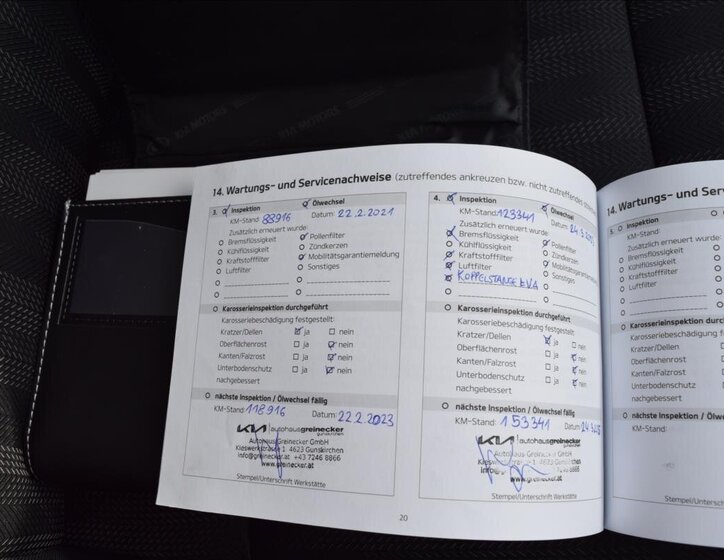 KIA MOTORS
14. Wartungs- und Servicenachweise (zutreffendes ankreuzen bzw. nicht zutreffendes
3. Inspektion Ölwechsel
KM-Stand: 88916 Datum: 22.2.2021
Zusätzlich erneuert wurde:
Bremsflüssigkeit Pollenfilter
Kühlflüssigkeit Zündkerzen
Kraftstofffilter Mobilitätsgarantiemeldung
Luftfilter Sonstiges
Karosserieinspektion durchgeführt
Karosseriebeschädigung festgestellt:
Kratzer/Dellen ja nein
Oberflächenrost ja nein
Kanten/Falzrost ja nein
Unterbodenschutz ja nein
nachgebessert
nächste Inspektion / Ölwechsel fällig
KM-Stand: 118916 Datum: 22.2.2023
KIA autohausgreinecker
gunskirchen
Autohaus Greinecker GmbH
Kieswerkstraße 1, 4623 Gunskirchen
info@greinecker.at +43 7246 8866
www.greinecker.at
Stempel/Unterschrift Werkstätte
4. Inspektion Ölwechsel
KM-Stand: 123341 Datum:
Zusätzlich erneuert wurde:
Bremsflüssigkeit Pollenfilter
Kühlflüssigkeit Zündkerzen
Kraftstofffilter Mobilitätsgarantiemeldung
Luftfilter Sonstiges
KOPPELSTANGE
Karosserieinspektion durchgeführt
Karosseriebeschädigung festgestellt:
Kratzer/Dellen ja nein
Oberflächenrost ja nein
Kanten/Falzrost ja nein
Unterbodenschutz ja nein
nachgebessert
nächste Inspektion / Ölwechsel fällig
KM-Stand: 153341 Datum:
KIA autohausgreinecker
gunskirchen
Greinecker GmbH
4623 Gunskirchen
8866
www.greinecker.at
Stempel/Unterschrift Werkstätte
20
14. Wartungs- und Serv
5. Inspektion
KM-Stand:
Zusätzlich erneuert wurde
Bremsflüssigkeit
Kühlflüssigkeit
Kraftstofffilter
Luftfilter
Karosserieinspektion durchge
Karosseriebeschädigung festge
Kratzer/Dellen
Oberflächenrost
Kanten/Falzrost
Unterbodenschutz
nachgebessert
nächste Inspektion / Ölwech
KM-Stand:
Stempel/Unters